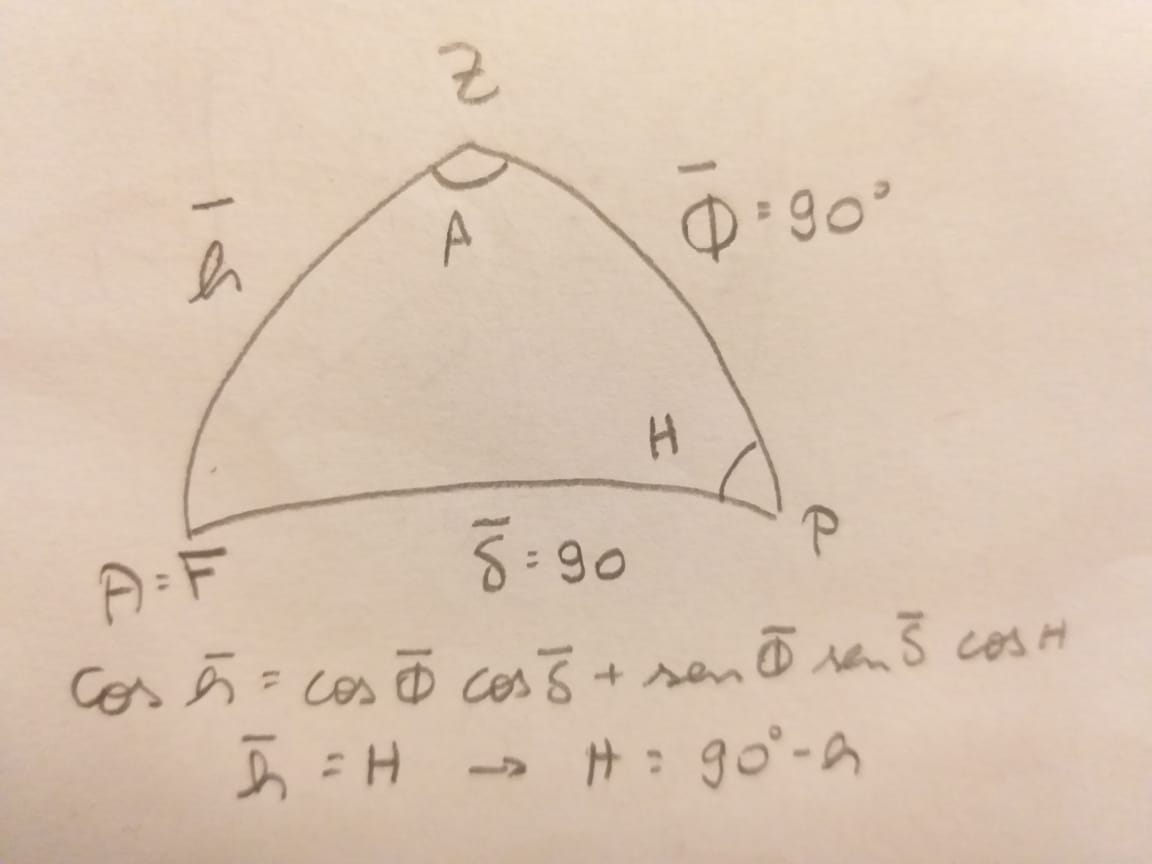 Z
h̄
A
Φ̄ = 90°
H
P
A = F
δ̄ = 90
cos h̄ = cos Φ̄ cos δ̄ + sen Φ̄ sen δ̄ cos H
h̄ = H → H = 90° - h